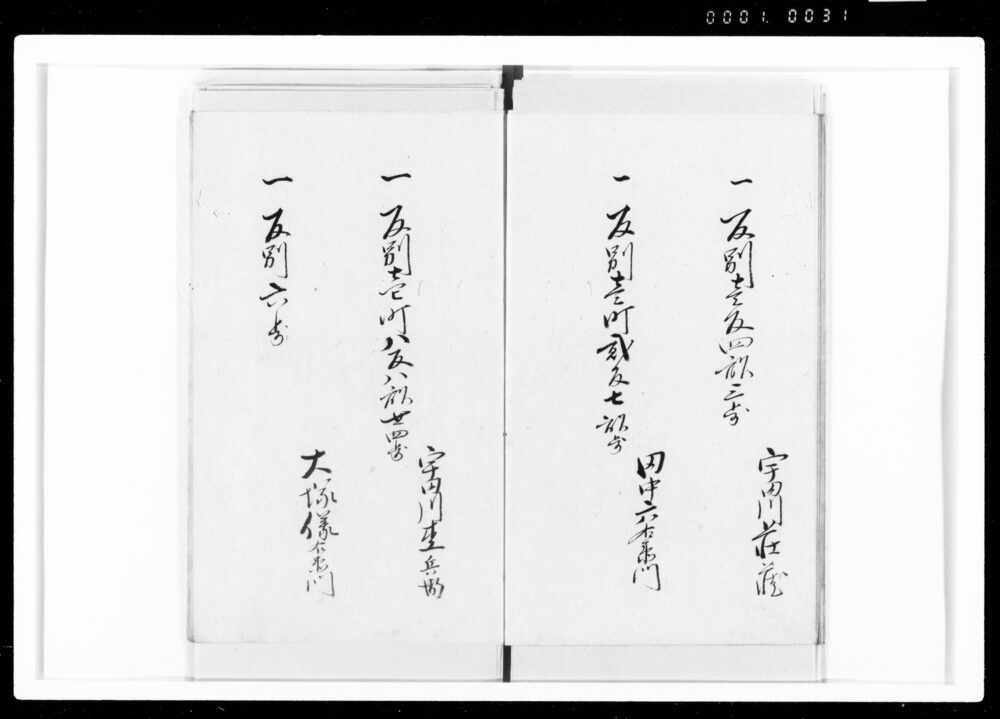 0001.0031
一 反別壱反四畝三歩
宇田川荘蔵
一 反別壱町弐反七畝歩
田中六右衛門
一 反別壱町八反八畝廿四歩
宇田川杢兵衛
一 反別六歩
大塚儀右衛門